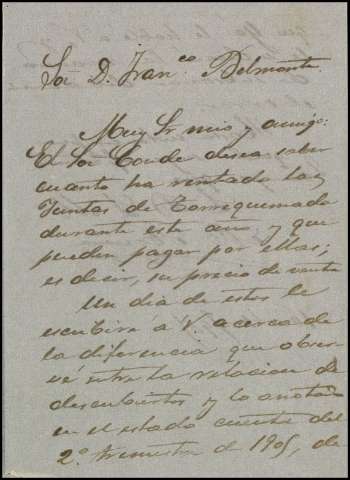 Sor. D. Franco. Belmonte
Muy Sr. mio y amigo:
El Sor Conde desea saber
cuanto ha rentado las
Juntas de Torrequemada
durante este año y que
pueden pagar por ellas;
es decir, su precio de venta
Un dia de estos le
escribirá á V. acerca de
la diferencia que obser-
vé entre la relacion de
descubiertos y lo anotado
en el estado cuenta del
2º trimestre de 1905, de